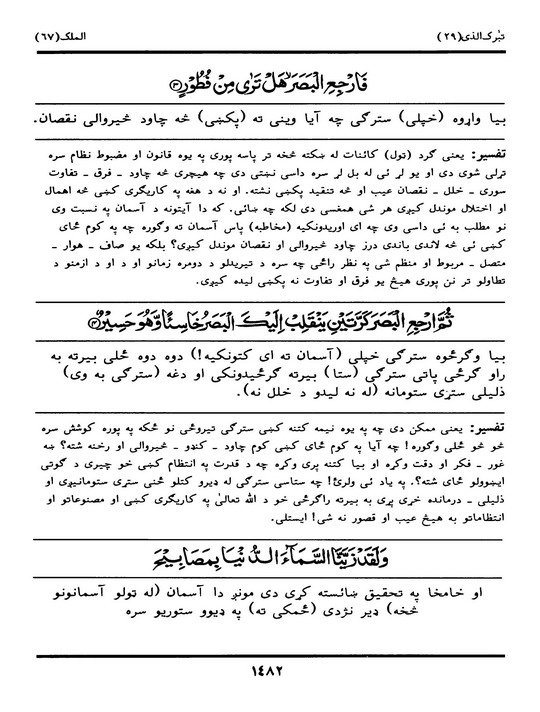 تبٰرک الذی(۲۹)
الملک(۶۷)
فَارْجِعِ الْبَصَرَ هَلْ تَرٰى مِنْ فُطُوْرٍ۝۳
بیا واړوه (خپلی) سترګی چه آیا وینی ته (پکښی) څه چاود څیروالی نقصان.
تفسیر: یعنی ګرد (ټول) کائنات له ښکته څخه تر پاسه پوری په یوه قانون او مضبوط نظام سره
تړلی شوی دی او یو لړ ئی له بل لړ سره داسی نښتی دی چه هیچری څه چاود ـ فرق ـ تفاوت
سوری ـ خلل ـ نقصان عیب او څه تنقید پکښی نشته. او نه د هغه په کاریګری کښی څه اهمال
او اختلال موندل کیږی هر شی همغسی دی لکه چه ښائی. که دا آیتونه د آسمان په نسبت وی
نو مطلب به ئی داسی وی چه ای اوریدونکیه (مخاطبه) پاس آسمان ته وګوره چه په کوم ځای
کښی ئی څه لاندی باندی درز چاود څیروالی او نقصان موندل کیږی؟ بلکه یو صاف ـ هوار ـ
متصل ـ مربوط او منظم شی په نظر راځی چه سره د تیریدلو د دومره زمانو او د او د ازمنو د
تطاولو تر نن پوری هیڅ یو فرق او تفاوت نه پکښی لیده کیږی.
ثُمَّ ارْجِعِ الْبَصَرَ كَرَّتَيْنِ يَنْقَلِبْ اِلَيْكَ الْبَصَرُ خَاسِئًا وَّهُوَ حَسِيْرٌ۝۴
بیا وګرځوه سترګی خپلی (آسمان ته ای کتونکیه!) دوه دوه ځلی بیرته به
راو ګرځی پاتی سترګی (ستا) بیرته ګرځیدونکی او دغه (سترګی به وی)
ذلیلی ستړی ستومانه (له نه لیدو د خلل نه).
تفسیر: یعنی ممکن دی چه په یوه نیمه کتنه کښی سترګی تیروځی نو ځکه په پوره کوشش سره
څو څو ځلی وګوره! چه آیا په کوم ځای کښی کوم چاود ـ کنډو ـ څیروالی او رخنه شته؟ ښه
غور ـ فکر او دقت وکړه او بیا کتنه پری وکړه چه د قدرت په انتظام کښی خو چیری د ګوتی
ایښوولو ځای شته؟. په یاد ئی ولرئ! چه ستاسی سترګی له ډیرو کتلو څنی ستړی ستومانیږی او
ذلیلی ـ درمانده خړی پړی به بیرته راګرځی خو د الله تعالیٰ په کاریګری کښی او مصنوعاتو او
انتظاماتو به هیڅ عیب او قصور نه شی! ایستلی.
وَلَقَدْ زَيَّنَّا السَّمَآءَ الدُّنْيَا بِمَصَابِيْحَ
او خامخا په تحقیق ښائسته کړی دی مونږ دا آسمان (له ټولو آسمانونو
څخه) ډیر نژدی (ځمکی ته) په ډیوو ستوریو سره
۱٤۸۲